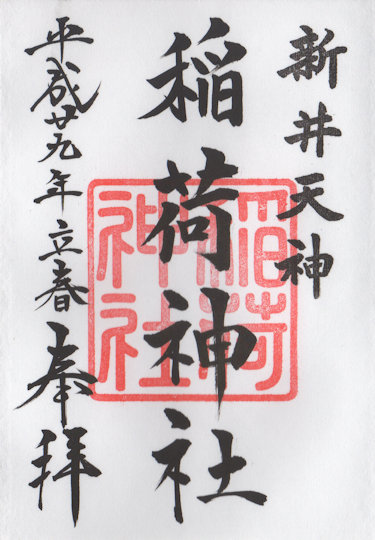 新井天神
稲荷神社
稲荷神社
平成廿九年立春奉拝